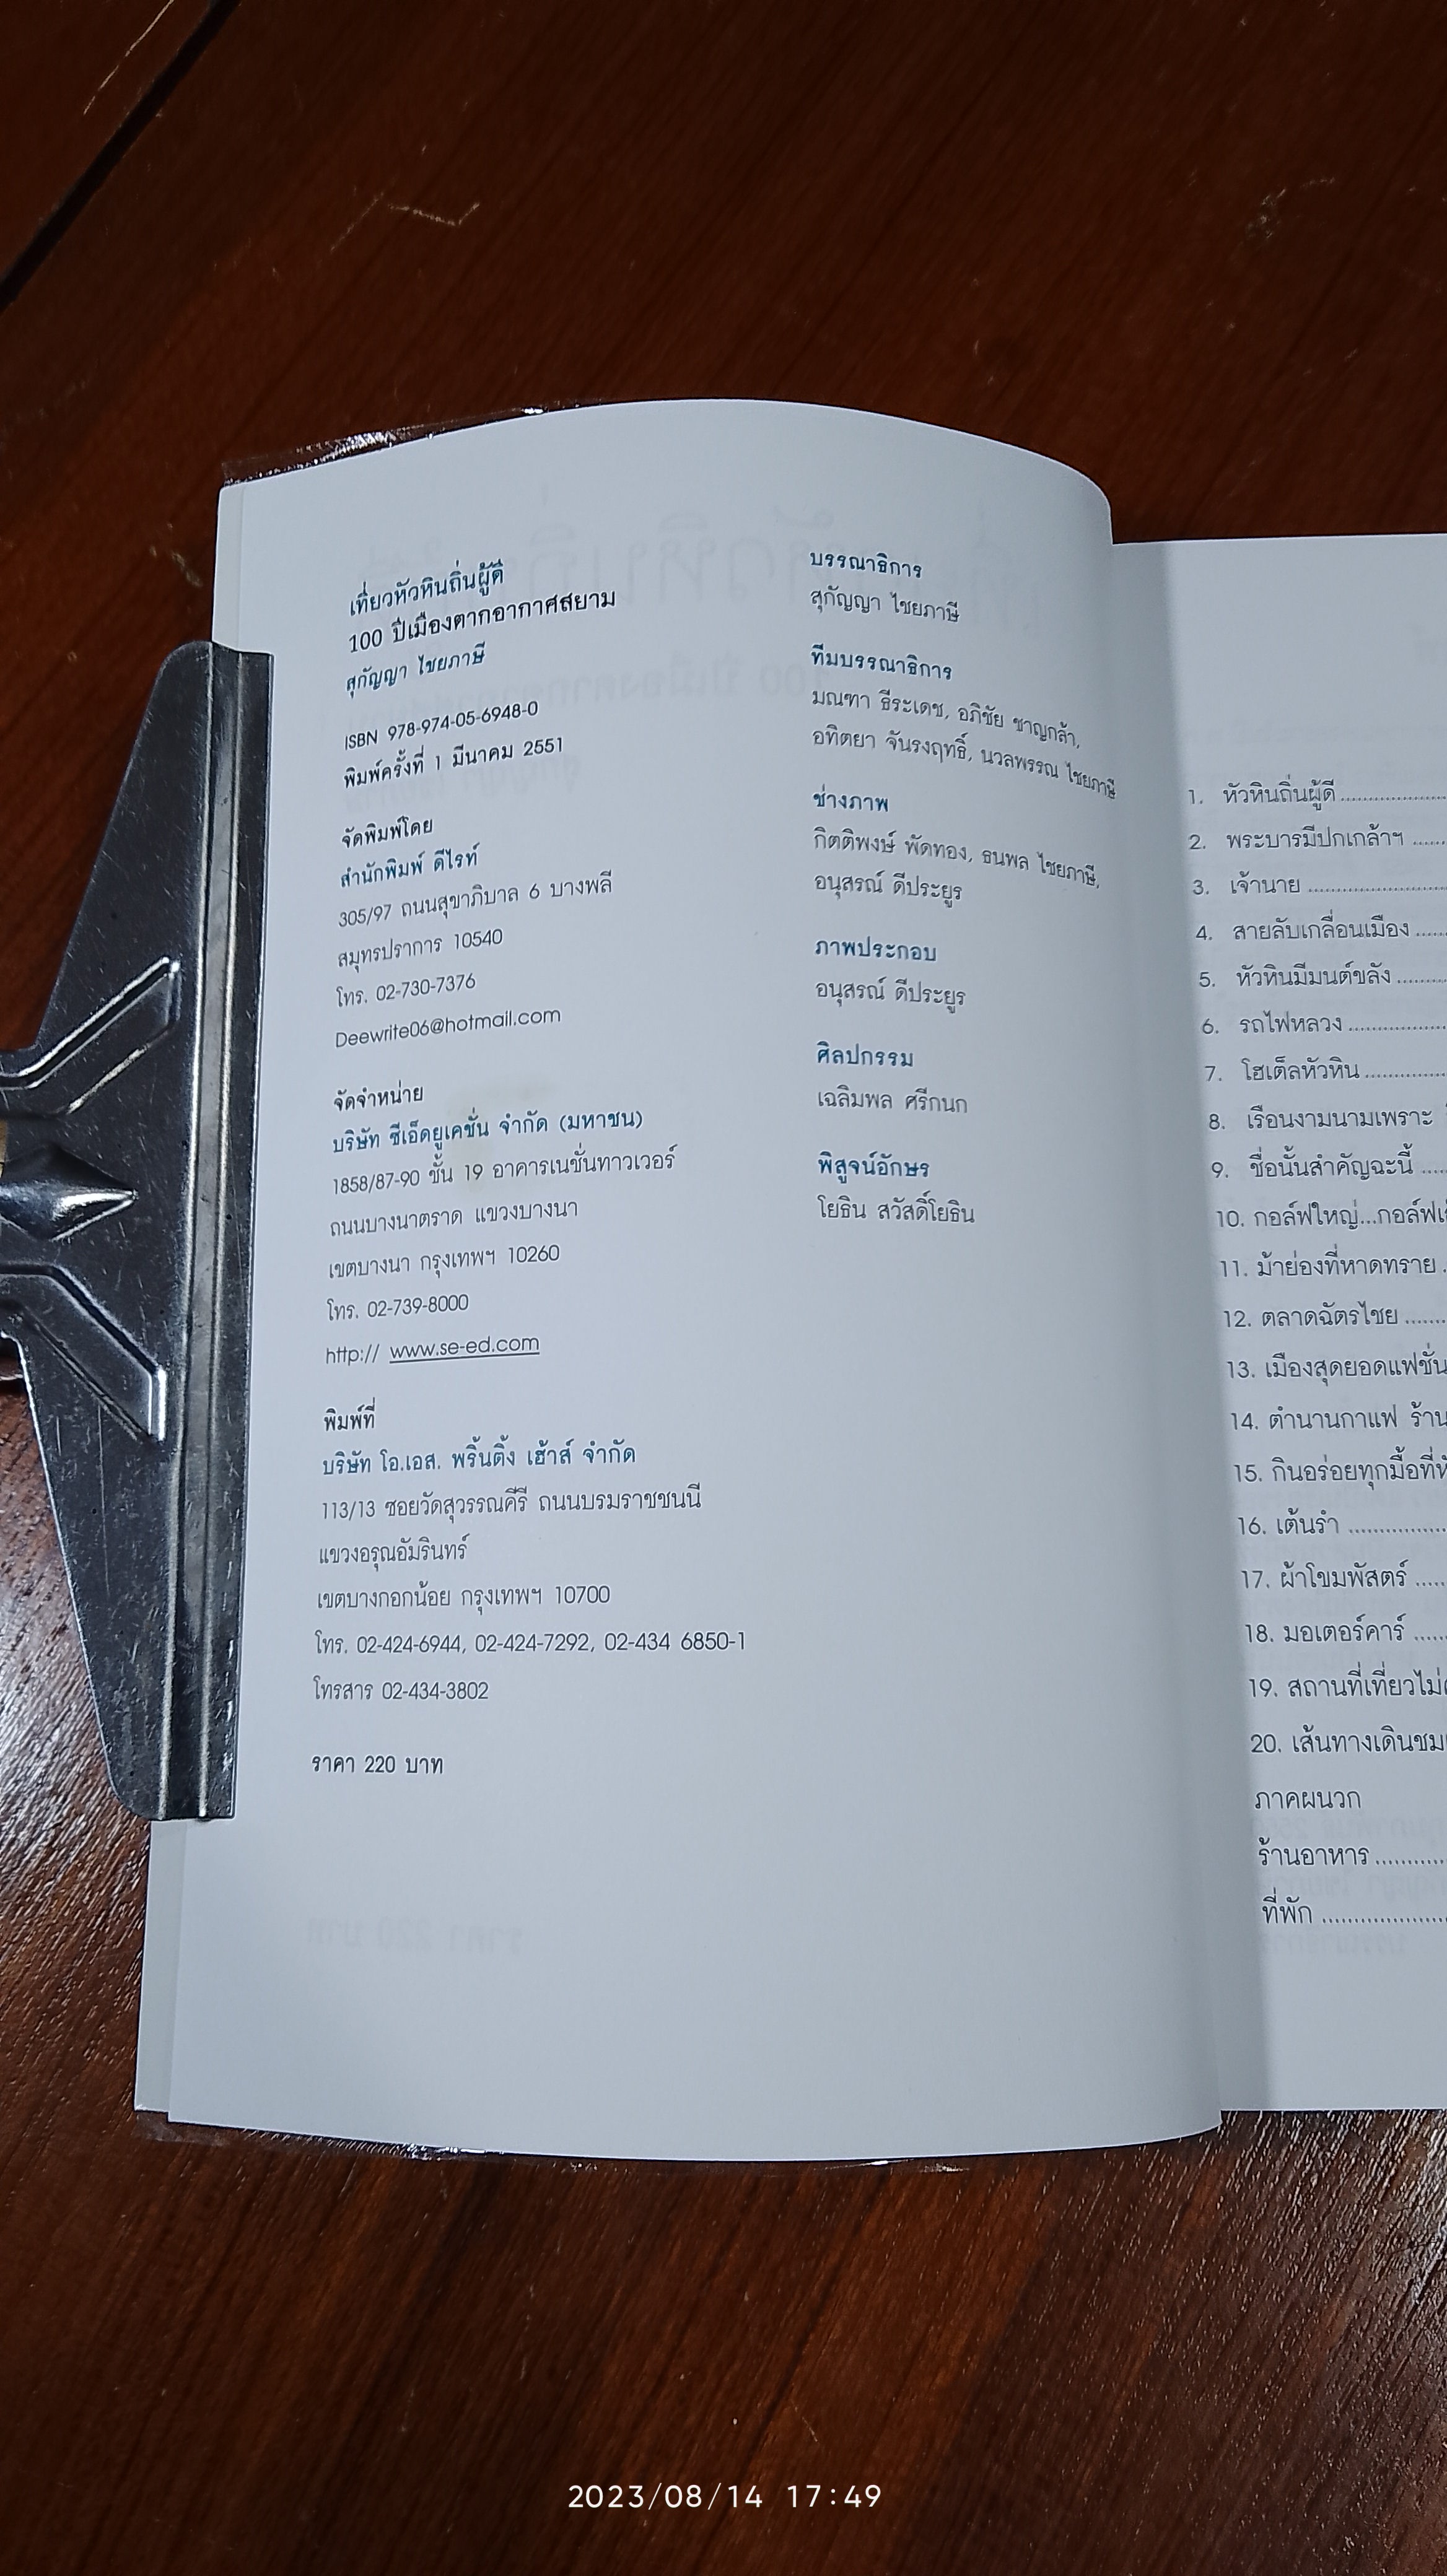 เที่ยวหัวหินถิ่นผู้ดี
100 ปีเมืองตากอากาศสยาม
สุกัญญา ไชยภาษี
ISBN 978-974-05-6948-0
พิมพ์ครั้งที่ 1 มีนาคม 2551
จัดพิมพ์โดย
สำนักพิมพ์ ดีไรท์
305/97 ถนนสุขาภิบาล 6 บางพลี
สมุทรปราการ 10540
โทร. 02-730-7376
Deewrite06@hotmail.com
จัดจำหน่าย
บริษัท ซีเอ็ดยูเคชั่น จำกัด (มหาชน)
1858/87-90 ชั้น 19 อาคารเนชั่นทาวเวอร์
ถนนบางนาตราด แขวงบางนา
เขตบางนา กรุงเทพฯ 10260
โทร. 02-739-8000
http:// www.se-ed.com
พิมพ์ที่
บริษัท โอ.เอส. พริ้นติ้ง เฮ้าส์ จำกัด
113/13 ซอยวัดสุวรรณคีรี ถนนบรมราชชนนี
แขวงอรุณอัมรินทร์
เขตบางกอกน้อย กรุงเทพฯ 10700
โทร. 02-424-6944, 02-424-7292, 02-434 6850-1
โทรสาร 02-434-3802
ราคา 220 บาท
บรรณาธิการ
สุกัญญา ไชยภาษี
ทีมบรรณาธิการ
มณฑา ธีระเดช, อภิชัย ชาญกล้า,
อทิตยา จันรงฤทธิ์, นวลพรรณ ไชยภาษี
ช่างภาพ
กิตติพงษ์ พัดทอง, ธนพล ไชยภาษี,
อนุสรณ์ ดีประยูร
ภาพประกอบ
อนุสรณ์ ดีประยูร
ศิลปกรรม
เฉลิมพล ศรีกนก
พิสูจน์อักษร
โยธิน สวัสดิ์โยธิน
1. หัวหินถิ่นผู้ดี
2. พระบารมีปกเกล้าฯ
3. เจ้านาย
4. สายลับเกลื่อนเมือง
5. หัวหินมีมนต์ขลัง
6. รถไฟหลวง
7. โฮเต็ลหัวหิน
8. เรือนงามนามเพราะ
9. ชื่อนั้นสำคัญฉะนี้
10. กอล์ฟใหญ่...กอล์ฟ
11. ม้าย่องที่หาดทราย
12. ตลาดฉัตรไชย
13. เมืองสุดยอดแฟชั่น
14. ตำนานกาแฟ ร้าน
15. กินอร่อยทุกมื้อที่
16. เต้นรำ
17. ผ้าโขมพัสตร์
18. มอเตอร์คาร์
19. สถานที่เที่ยวไม่
20. เส้นทางเดินชม
ภาคผนวก
ร้านอาหาร
ที่พัก
2023/08/14 17:49